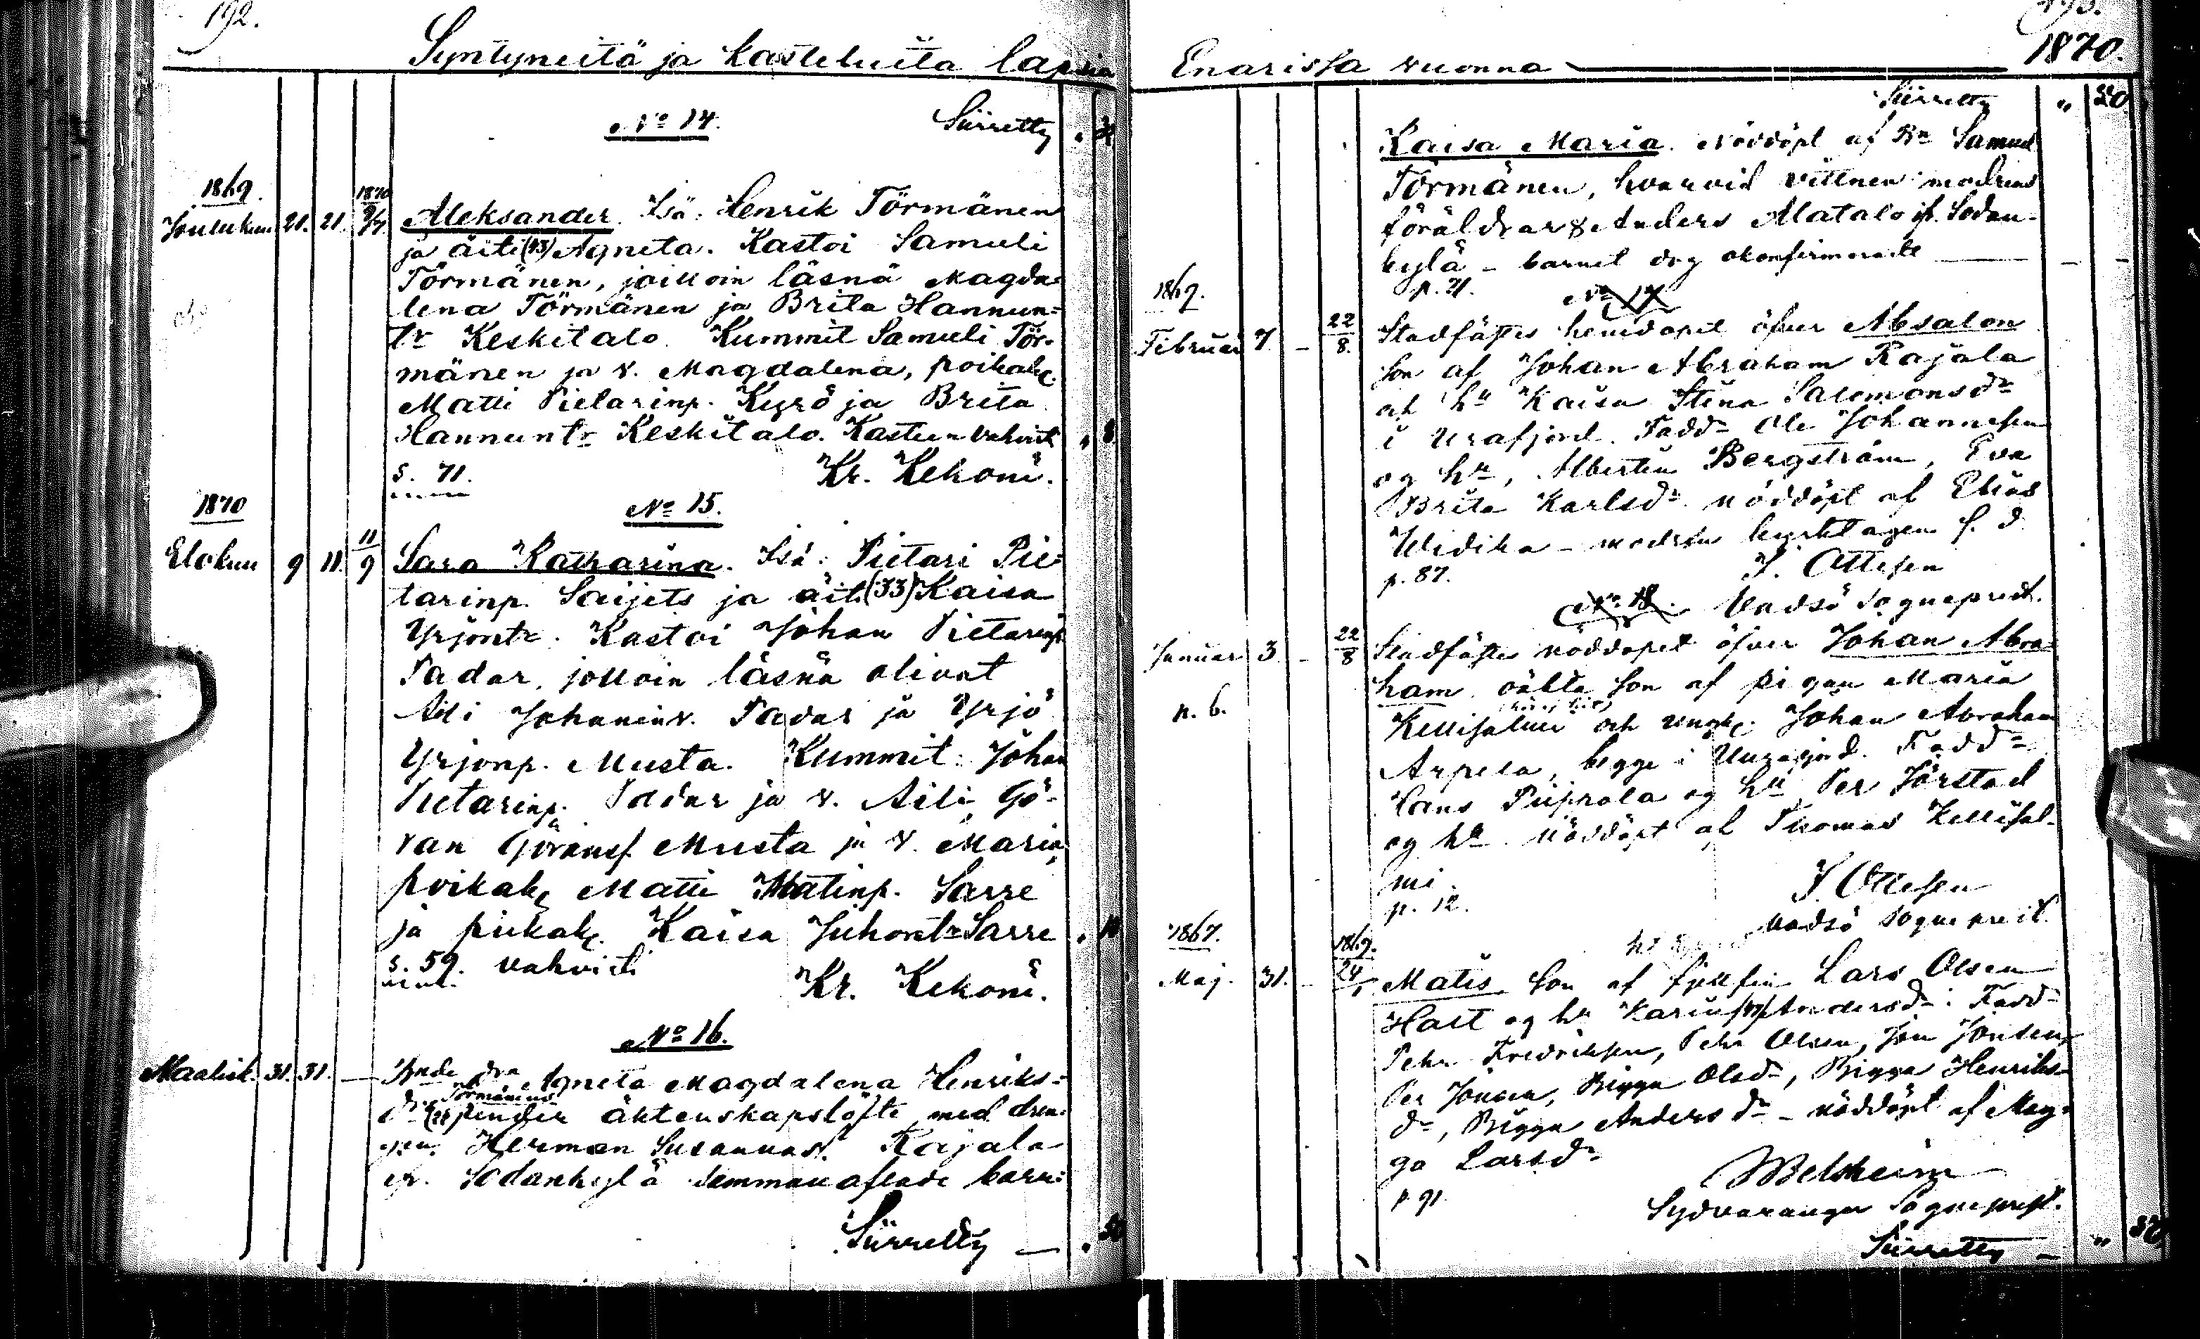 192.
Syntyneitä ja kasteluita lapsia
No 14.
Siirretty
1869.
1870
Joulukuu 21. 21. 9/7 Aleksander. Isä: Henrik Törmänen
ja äiti (43) Agneta. Kastoi Samuli
Törmänen, joilloin läsnä Magda-
lena Törmänen ja Brita Hannun-
tr Keskitalo. Kummit Samuli Tör-
mänen ja v. Magdalena, poikak.
Matti Pietarinp. Kyrö ja Brita
Hannuntr Keskitalo. Kasteen vahvisti
s. 71. Kr. Kekoni.
1870
No 15.
Elokuu 9 11. 11/9 Sara Katharina. Isä: Pietari Pie-
tarinp. Saijets ja äiti (33) Kaisa
Yrjöntr. Kastoi Johan Pietarinp.
Padar, jolloin läsnä olivat
Aili Johanin v. Padar ja Yrjö
Yrjönp. Musta. Kummit: Johan
Pietarinp. Padar ja v. Aili, Gö-
ran Göransf. Musta ja v. Maria,
poikak. Matti Matinp. Sarre
ja piikak. Kaisa Juhontr Sarre
s. 59. vahvisti
Kr. Kekoni.
No 16.
Maalisk. 31. 31. — Agneta Magdalena Henriks-
Törmänens
dr under äktenskapslöfte med dren-
gen Herman Susannas. Rajala
ifr. Sodankylä semman aflade barn:
Siirretty —
193.
Enarista vuonna — 1870.
Siirretty " 20
Kaisa Maria. Nöddöpt af Bn Samuel
Törmänen, hvarvid vittnen modrens
föräldrar & Anders Alatalo ifr. Sodan-
kylä - barnet dog okonfirmeradt
p. 71.
No 17
1869.
Februari 7. - 22/8. Stadfästes hemdopet öfver Absalon
son af Johan Abraham Rajala
och hu Kaisa Stina Salomonsdr
i Urafjord. Fadd. Ole Johannesen
og hu, Albertin Bergström, Eva
Brita Karlsdr. Nöddöpt af Elias
Widika - modren kyrktagen s. d.
p. 87. J. Ottesen
No 18. Vadsö Sognepræst.
Januar 3. - 22/8 Stadfästes nöddopet öfver Johan Abra-
ham oäkta son af pigan Maria
n. b. Kellisalmi och ungk. Johan Abraham
Arpela, begge i Urafjord. Fadd.
Hans Piiprala og hu Per Jörstad
og hu. Nöddöpt af Thomas Kellisal-
mi.
p. 12. J. Ottesen
Vadsö Sognepræst.
1867. 1869.
Maj. 31. - 24/1 Matis son af fjellfin Lars Olsen
Hast og hu Karin Andersdr: Fadd.
Pehr Fredriksen, Pehr Olsen, Jon Jonsen,
Per Jonsen, Bigga Olsdr, Bigga Henriks-
dr, Bigga Andersdr - nöddöpt af Mag-
ga Larsdr
p 91 Welsheim
Sydvaranger Sognepræst.
Siirretty —